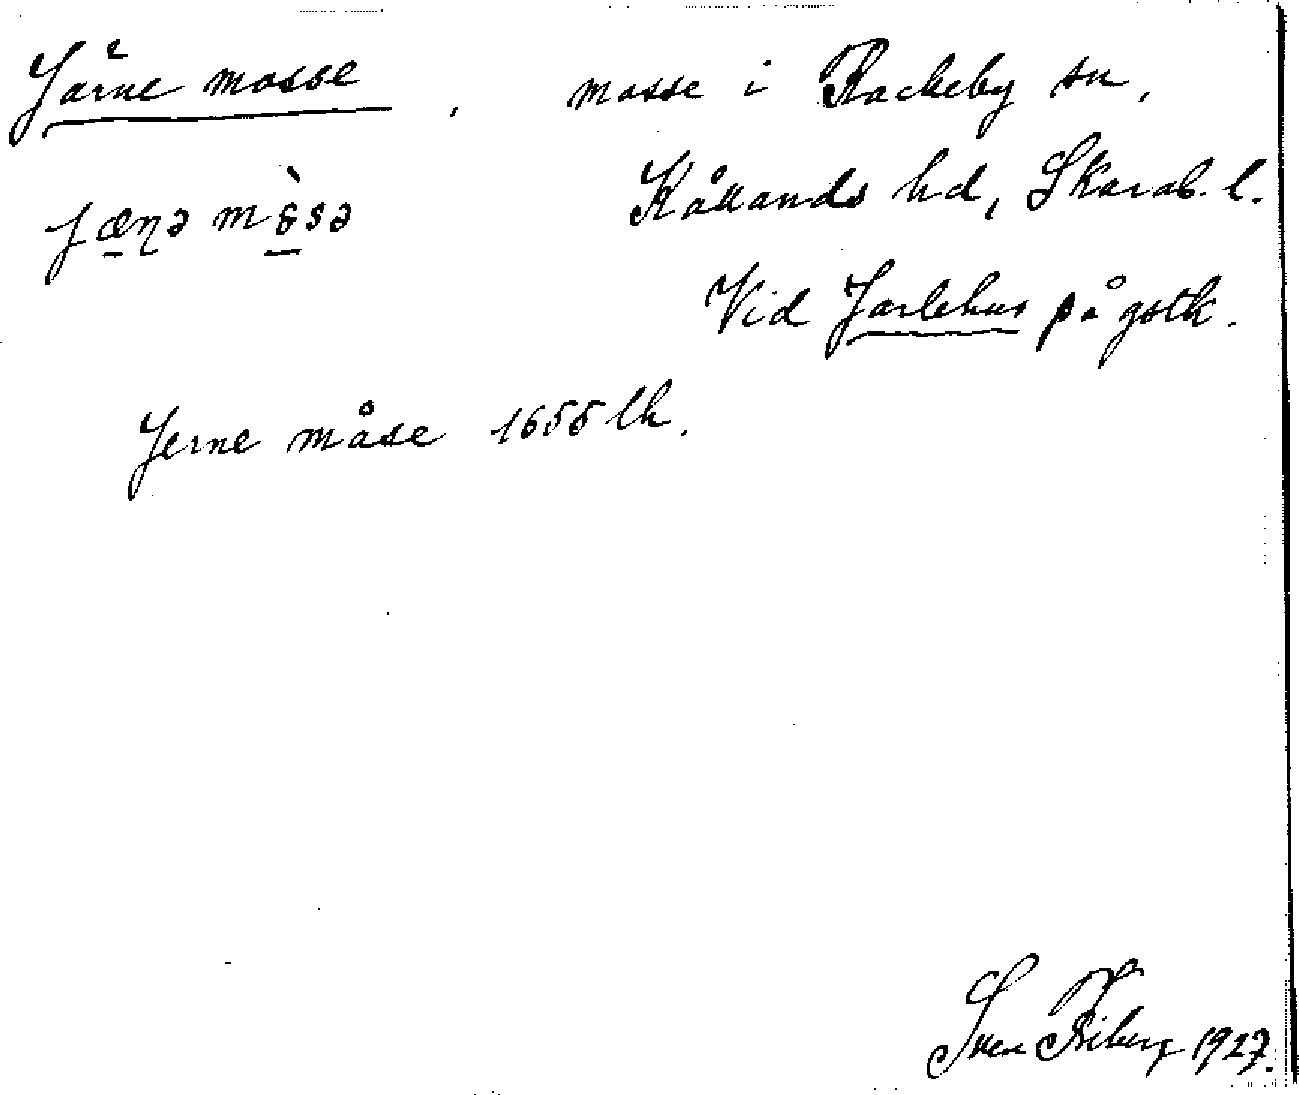 Järne mosse, mosse i Rackeby sn,
Kållands hd, Skarab. l.
jæɳə mòsə
Vid Jarlehus på gstk.
Jerne måse 1655 lk.
Sven Friberg 1927.